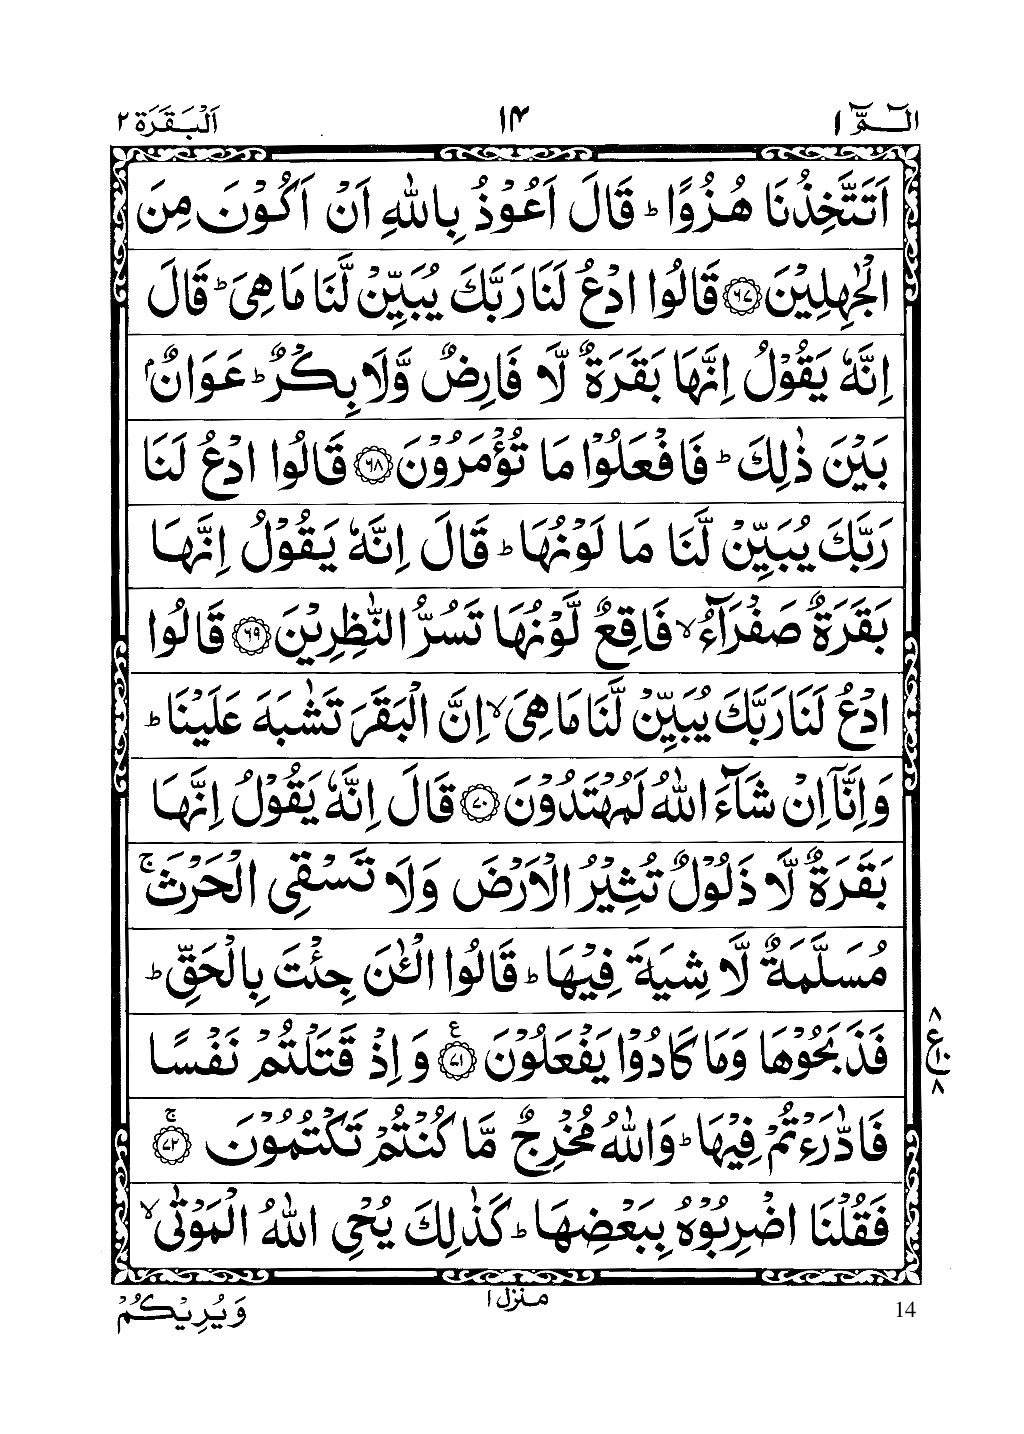 الٓـمّٓ ١ ١٤ اَلْبَقَرَة ٢
اَتَتَّخِذُنَا هُزُوًا ؕ قَالَ اَعُوْذُ بِاللّٰهِ اَنْ اَكُوْنَ مِنَ
الْجٰهِلِيْنَ ۝۶۷ قَالُوا ادْعُ لَنَا رَبَّكَ يُبَيِّنْ لَّنَا مَا هِىَ ؕ قَالَ
اِنَّهٗ يَقُوْلُ اِنَّهَا بَقَرَةٌ لَّا فَارِضٌ وَّلَا بِكْرٌ ؕ عَوَانٌۢ
بَيْنَ ذٰلِكَ ؕ فَافْعَلُوْا مَا تُؤْمَرُوْنَ ۝۶۸ قَالُوا ادْعُ لَنَا
رَبَّكَ يُبَيِّنْ لَّنَا مَا لَوْنُهَا ؕ قَالَ اِنَّهٗ يَقُوْلُ اِنَّهَا
بَقَرَةٌ صَفْرَآءُ ۙ فَاقِعٌ لَّوْنُهَا تَسُرُّ النّٰظِرِيْنَ ۝۶۹ قَالُوا
ادْعُ لَنَا رَبَّكَ يُبَيِّنْ لَّنَا مَا هِىَ ۙ اِنَّ الْبَقَرَ تَشٰبَهَ عَلَيْنَا ؕ
وَاِنَّآ اِنْ شَآءَ اللّٰهُ لَمُهْتَدُوْنَ ۝۷۰ قَالَ اِنَّهٗ يَقُوْلُ اِنَّهَا
بَقَرَةٌ لَّا ذَلُوْلٌ تُثِيْرُ الْاَرْضَ وَلَا تَسْقِى الْحَرْثَ ۚ
مُسَلَّمَةٌ لَّا شِيَةَ فِيْهَا ؕ قَالُوا الْـٰٔنَ جِئْتَ بِالْحَقِّ ؕ
فَذَبَحُوْهَا وَمَا كَادُوْا يَفْعَلُوْنَ ۝۷۱ ع وَاِذْ قَتَلْتُمْ نَفْسًا
۸ ع ۱۰ ۸
فَادّٰرَءْتُمْ فِيْهَا ؕ وَاللّٰهُ مُخْرِجٌ مَّا كُنْتُمْ تَكْتُمُوْنَ ۝۷۲ ۚ
فَقُلْنَا اضْرِبُوْهُ بِبَعْضِهَا ؕ كَذٰلِكَ يُحْىِ اللّٰهُ الْمَوْتٰى ۙ
14 منزل ١ وَيُرِيْكُمْ